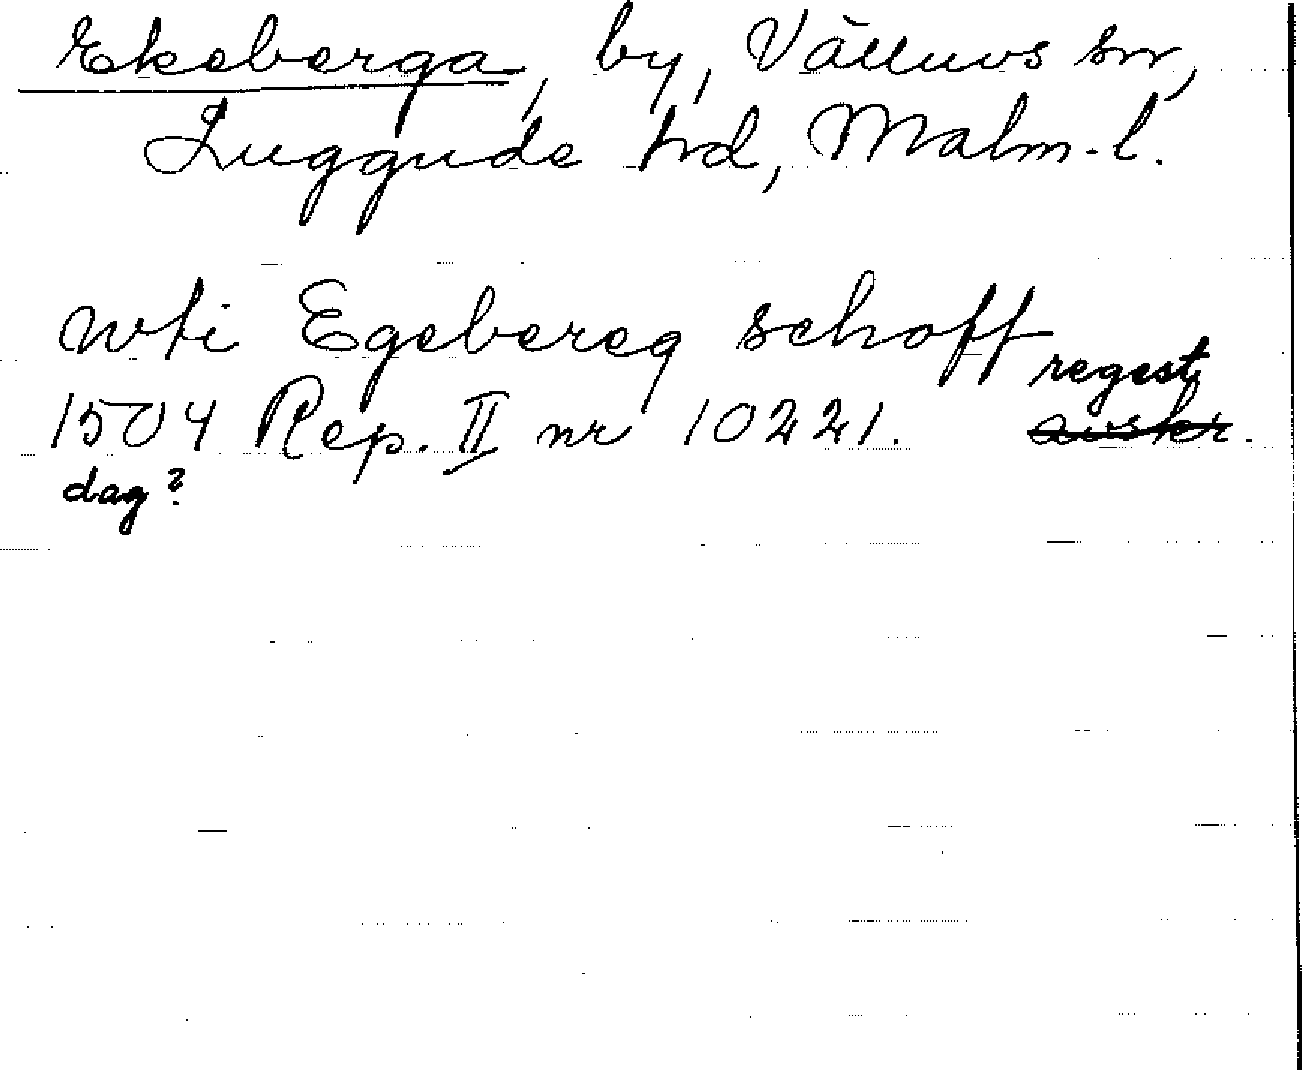 Ekeberga, by, Välluvs sn,
Luggude hd, Malm-l.
wti Egebereg schoff
regest
1504 Rep. II nr 10221. avskr.
dag?